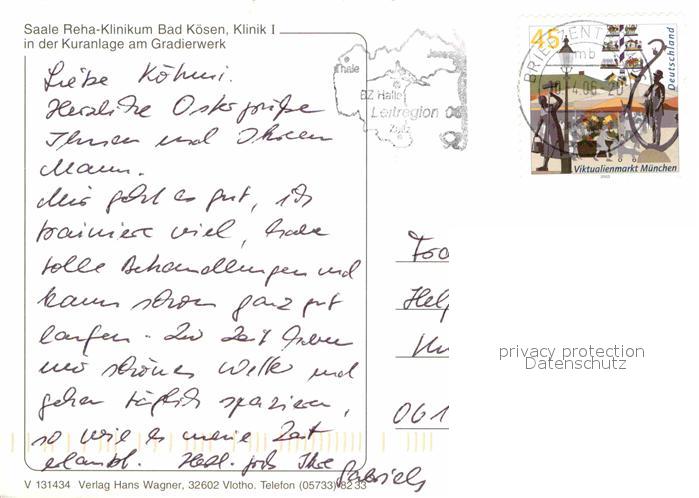 Saale Reha-Klinikum Bad Kösen, Klinik I
in der Kuranlage am Gradierwerk
Liebe
Herzliche Ostergrüße
Ihnen und Ihrem
Mann.
Mir geht es gut, ich
trainiere viel, habe
tolle Behandlungen und
kann schon ganz gut
laufen. Zur Zeit haben
wir schönes Wetter und
gehen täglich spazieren,
so wie es meine Zeit
erlaubt. Herzl. grüßt Ihre Gabriele
V 131434 Verlag Hans Wagner, 32602 Vlotho. Telefon (05733) 82 33
Thale
BZ Halle
Leitregion 06
Zeitz
BRIEFZENTRUM
mb
45
Deutschland
Viktualienmarkt München
2003
061
privacy protection
Datenschutz